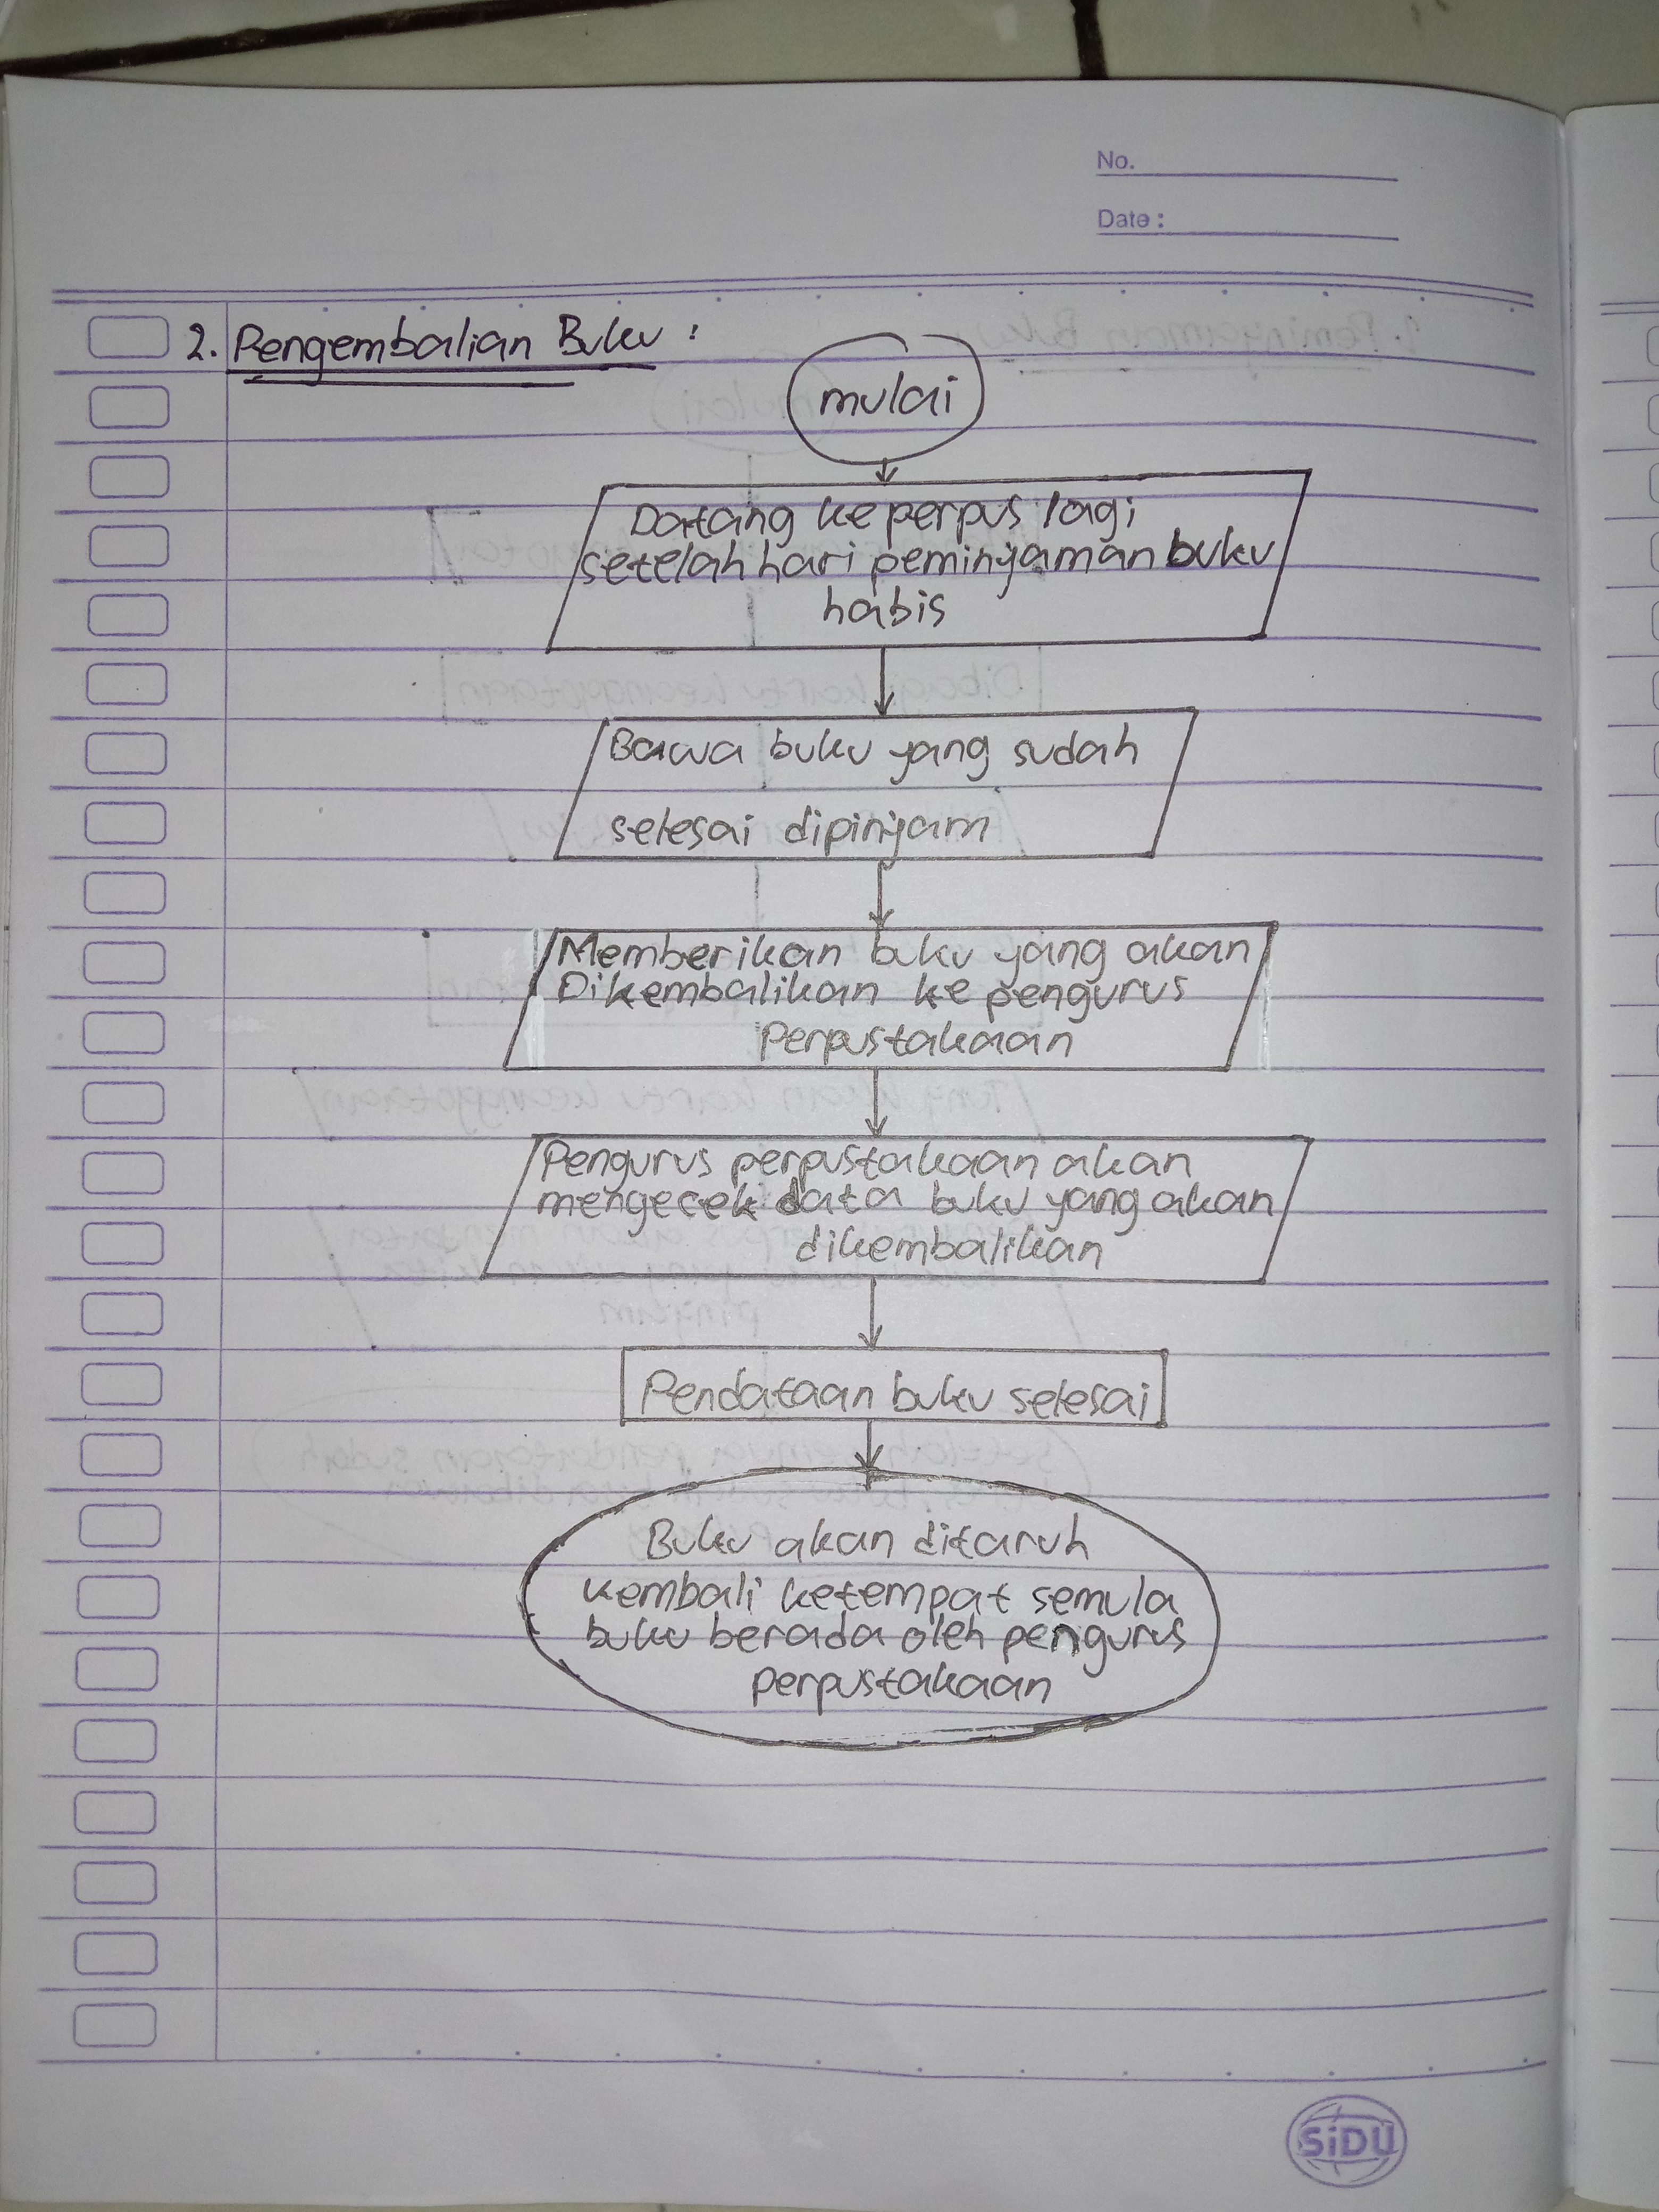 No.
Date :
2. Pengembalian Buku :
mulai
Datang ke perpus lagi
setelah hari peminjaman buku
habis
Bawa buku yang sudah
selesai dipinjam
Memberikan buku yang akan
Dikembalikan ke pengurus
Perpustakaan
Pengurus perpustakaan akan
mengecek data buku yang akan
dikembalikan
Pendataan buku selesai
Buku akan ditaruh
kembali ketempat semula
buku berada oleh pengurus
perpustakaan
SiDU